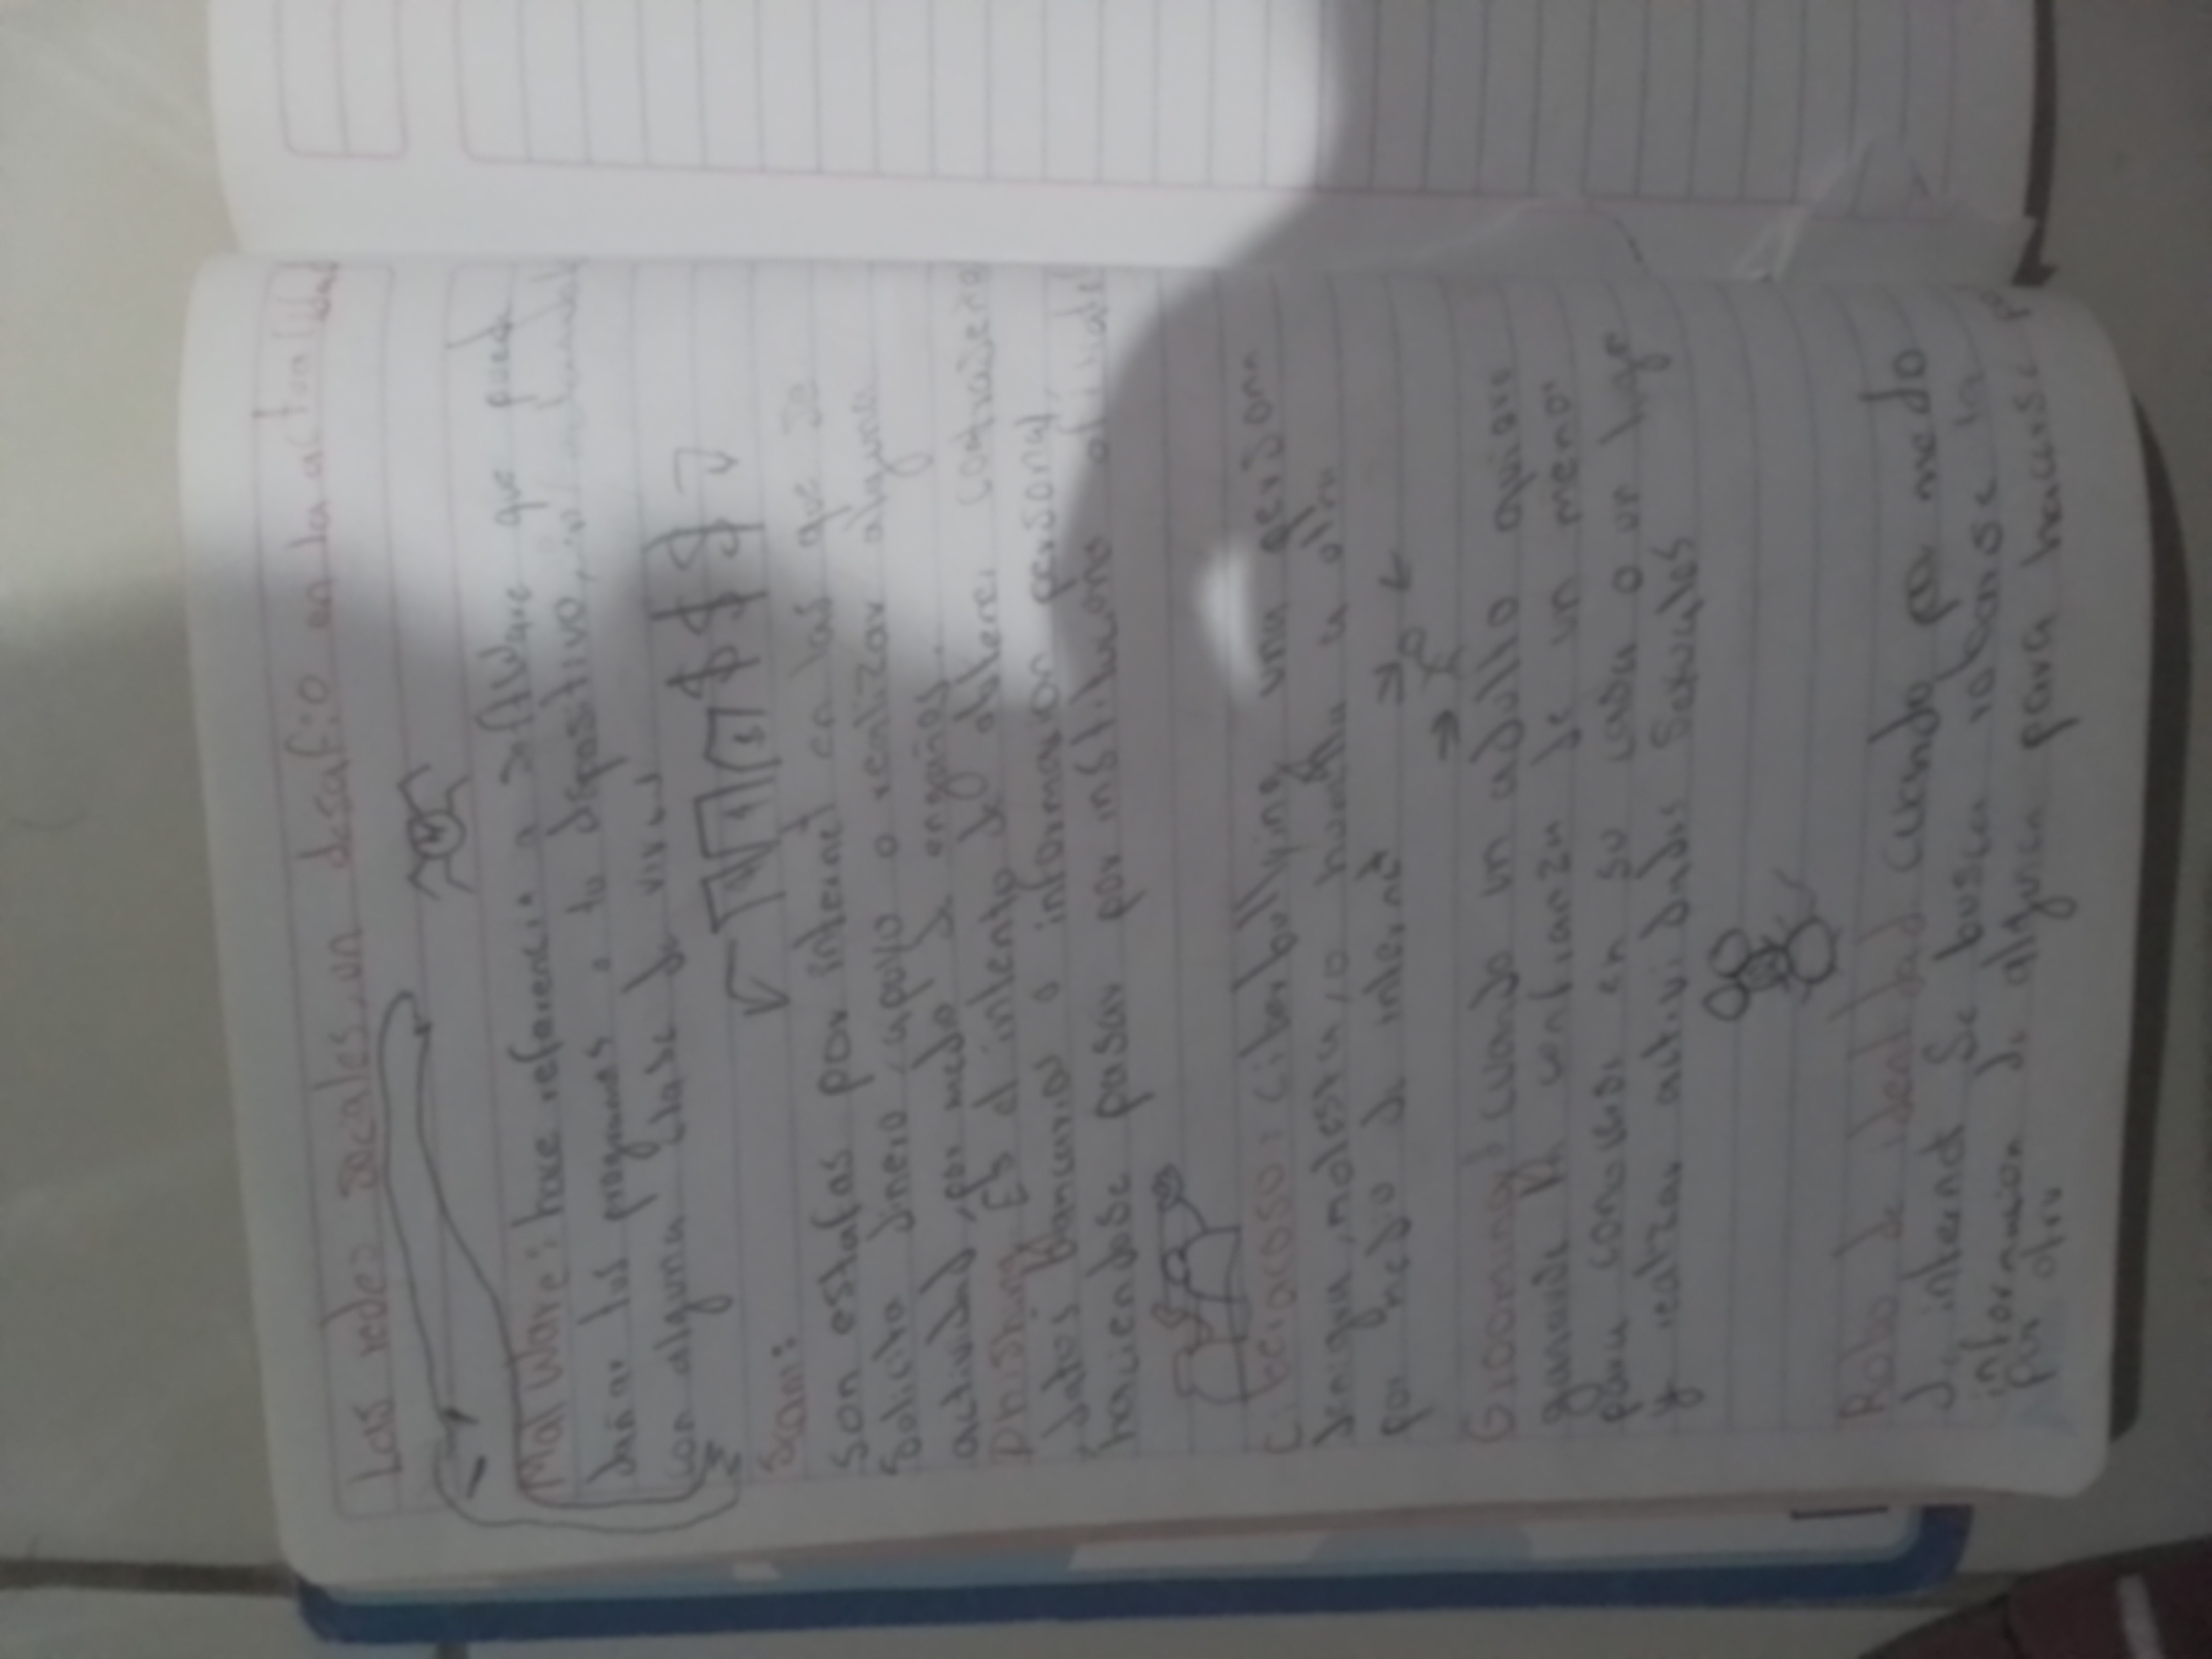 Las redes sociales, un desafio en la actualidad
Mal Ware: hace referencia a software que puede
dañar tus programas o tu dispositivo,
con alguna clase de virus
Scam:
Son estafas por internet en las que se
solicita dinero, apoyo o realizar alguna
actividad, por medio de engaños.
Phishing Es el intento de obtener contraseñas
datos bancarios o informacion personal,
haciendose pasar por instituciones oficiales
Ciberacoso: ciberbullying una persona
denigra, molesta, o humilla a otra
por medio de internet
Grooming cuando un adulto quiere
ganarse la confianza de un menor
para conocerse en su casa o un lugar
y realizar actividades sexuales
Robo de identidad cuando por medio
de internet se busca robarse la
informacion de alguien para hacerse
por otra